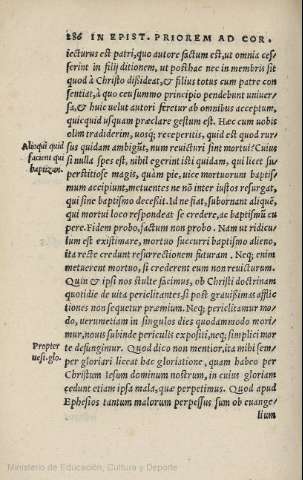 286 IN EPIST. PRIOREM AD COR.
iecturus est patri, quo autore factum est, ut omnia ces-
serint in filij ditionem, ut posthac nec in membris sit
quod à Christo dißideat, & filius totus cum patre con
sentiat, à quo ceu summo principio pendebunt uniuer-
sa, & huic uelut autori feretur ab omnibus acceptum,
quicquid usquam præclare gestum est. Hæc cum uobis
olim tradiderim, uosq; receperitis, quid est quod rur-
Alioqui quid
sus quidam ambigūt, num reuicturi sint mortui? Cuius
facient qui
si nulla spes est, nihil egerint isti quidam, qui licet su-
baptizan.
perstitiose magis, quàm pie, uice mortuorum baptis-
mum accipiunt, metuentes ne nō inter iustos resurgat,
qui sine baptismo deceßit. Id ne fiat, subornant aliquē,
qui mortui loco respondeat se credere, ac baptismū cu
pere. Fidem probo, factum non probo. Nam ut ridicu-
lum est existimare, mortuo succurri baptismo alieno,
ita recte credunt resurrectionem futuram. Neq; enim
metuerent mortuo, si crederent eum non reuicturum.
Quin & ipsi nos stulte facimus, ob Christi doctrinam
quotidie de uita periclitantes, si post grauißimas afflic
tiones non sequetur præmium. Neq; periclitamur mo-
do, uerumetiam in singulos dies quodammodo mori-
mur, nouis subinde periculis expositi, neq; simplici mor
Propter
te defungimur. Quod dico non mentior, ita mihi sem-
uest. glo.
per gloriari liceat hac gloriatione, quam habeo per
Christum Iesum dominum nostrum, in cuius gloriam
cedunt etiam ipsa mala, quæ perpetimus. Quod apud
Ephesios tantum malorum perpessus sum ob euange-
lium
Ministerio de Educación, Cultura y Deporte